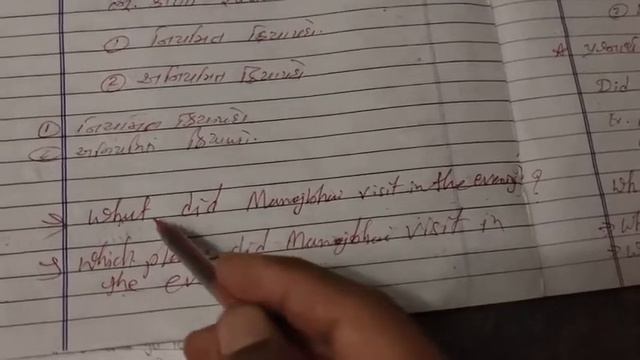 ① નિયમિત ક્રિયાપદો.
② અનિયમિત ક્રિયાપદો
① નિયમિત ક્રિયાપદો
② અનિયમિત ક્રિયાપદો.
→ What did Manojbhai visit in the evening?
→ Which did Manojbhai visit in
the
②
Did
Ex.
Wh
→ W